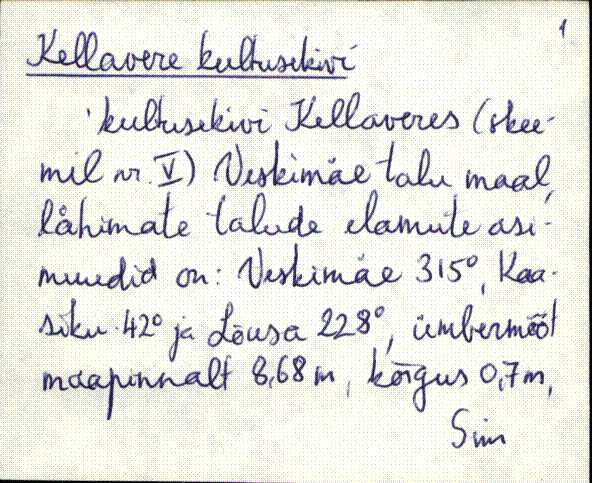 1
Kellavere kultusekivi
kultusekivi Kellaveres (skee-
mil nr. V) Veskimäe talu maal,
lähimate talude elamute asi-
muudid on: Veskimäe 315°, Kaa-
siku 42° ja Lõusa 228°, ümbermõõt
maapinnalt 8,68 m, kõrgus 0,7 m,
Siin